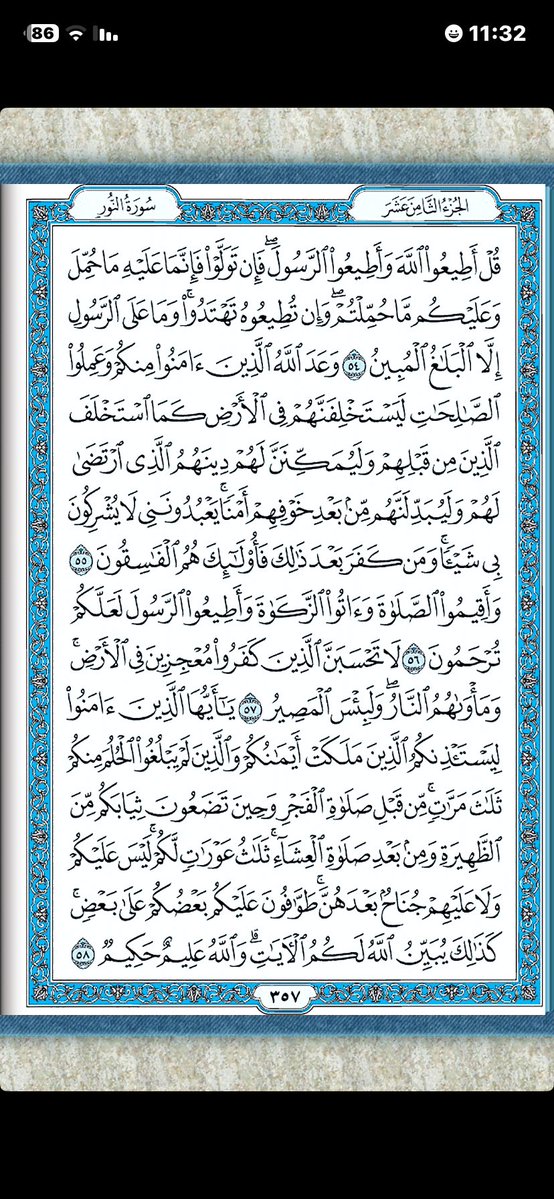 86 11:32
الجزء الثامن عشر سورة النور
قُلْ أَطِيعُوا۟ ٱللَّهَ وَأَطِيعُوا۟ ٱلرَّسُولَ ۖ فَإِن تَوَلَّوْا۟ فَإِنَّمَا عَلَيْهِ مَا حُمِّلَ
وَعَلَيْكُم مَّا حُمِّلْتُمْ ۖ وَإِن تُطِيعُوهُ تَهْتَدُوا۟ ۚ وَمَا عَلَى ٱلرَّسُولِ
إِلَّا ٱلْبَلَـٰغُ ٱلْمُبِينُ ٥٤ وَعَدَ ٱللَّهُ ٱلَّذِينَ ءَامَنُوا۟ مِنكُمْ وَعَمِلُوا۟
ٱلصَّـٰلِحَـٰتِ لَيَسْتَخْلِفَنَّهُمْ فِى ٱلْأَرْضِ كَمَا ٱسْتَخْلَفَ
ٱلَّذِينَ مِن قَبْلِهِمْ وَلَيُمَكِّنَنَّ لَهُمْ دِينَهُمُ ٱلَّذِى ٱرْتَضَىٰ
لَهُمْ وَلَيُبَدِّلَنَّهُم مِّنۢ بَعْدِ خَوْفِهِمْ أَمْنًا ۚ يَعْبُدُونَنِى لَا يُشْرِكُونَ
بِى شَيْـًٔا ۚ وَمَن كَفَرَ بَعْدَ ذَٰلِكَ فَأُو۟لَـٰٓئِكَ هُمُ ٱلْفَـٰسِقُونَ ٥٥
وَأَقِيمُوا۟ ٱلصَّلَوٰةَ وَءَاتُوا۟ ٱلزَّكَوٰةَ وَأَطِيعُوا۟ ٱلرَّسُولَ لَعَلَّكُمْ
تُرْحَمُونَ ٥٦ لَا تَحْسَبَنَّ ٱلَّذِينَ كَفَرُوا۟ مُعْجِزِينَ فِى ٱلْأَرْضِ ۚ
وَمَأْوَىٰهُمُ ٱلنَّارُ ۖ وَلَبِئْسَ ٱلْمَصِيرُ ٥٧ يَـٰٓأَيُّهَا ٱلَّذِينَ ءَامَنُوا۟
لِيَسْتَـْٔذِنكُمُ ٱلَّذِينَ مَلَكَتْ أَيْمَـٰنُكُمْ وَٱلَّذِينَ لَمْ يَبْلُغُوا۟ ٱلْحُلُمَ مِنكُمْ
ثَلَـٰثَ مَرَّٰتٍ ۚ مِّن قَبْلِ صَلَوٰةِ ٱلْفَجْرِ وَحِينَ تَضَعُونَ ثِيَابَكُم مِّنَ
ٱلظَّهِيرَةِ وَمِنۢ بَعْدِ صَلَوٰةِ ٱلْعِشَآءِ ۚ ثَلَـٰثُ عَوْرَٰتٍ لَّكُمْ ۚ لَيْسَ عَلَيْكُمْ
وَلَا عَلَيْهِمْ جُنَاحٌۢ بَعْدَهُنَّ ۚ طَوَّٰفُونَ عَلَيْكُم بَعْضُكُمْ عَلَىٰ بَعْضٍ ۚ
كَذَٰلِكَ يُبَيِّنُ ٱللَّهُ لَكُمُ ٱلْـَٔايَـٰتِ ۗ وَٱللَّهُ عَلِيمٌ حَكِيمٌ ٥٨
٣٥٧